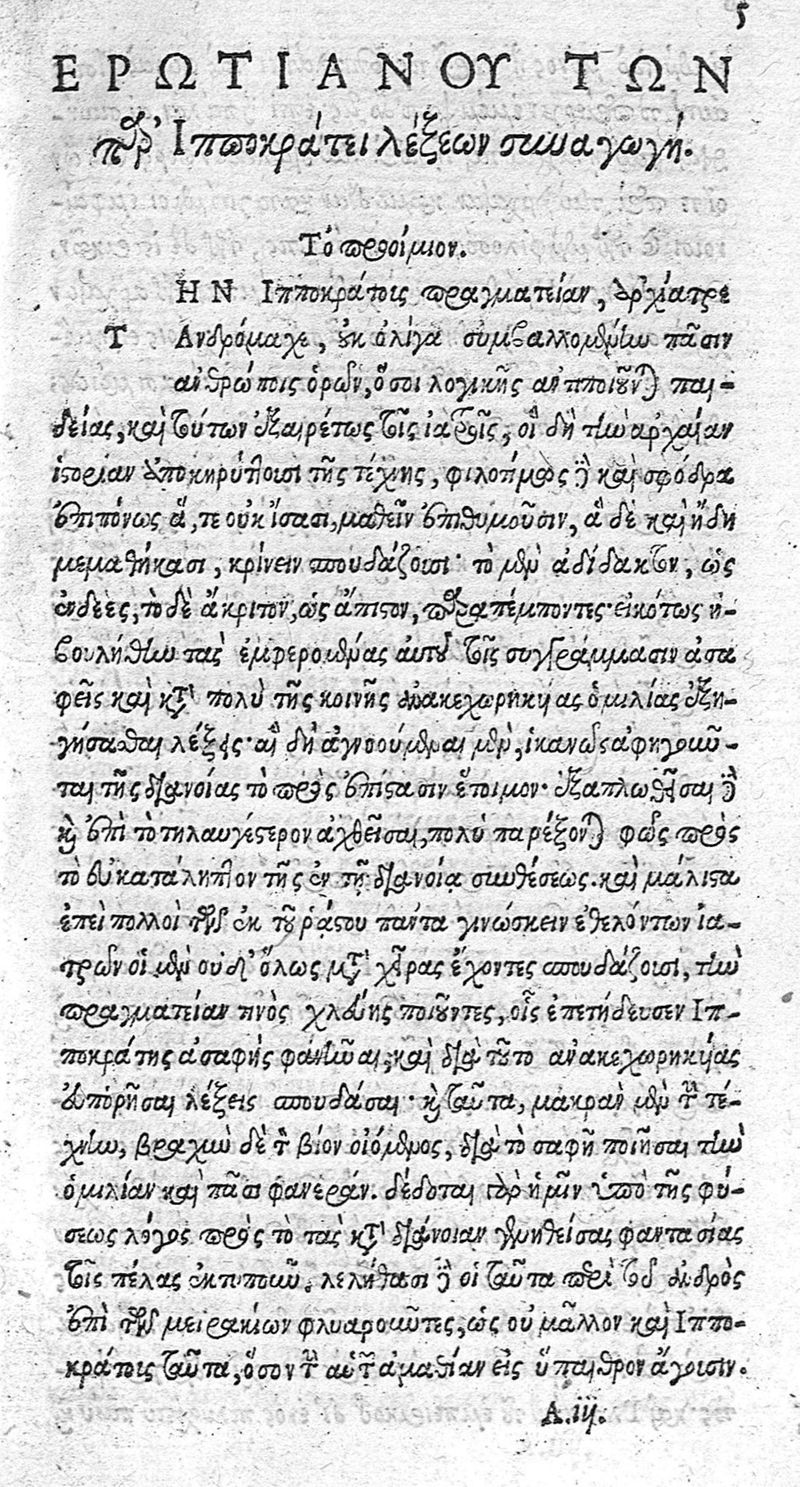 5
ΕΡΩΤΙΑΝΟΥ ΤΩΝ
παρ' Ἱπποκράτει λέξεων συναγωγή.
Τὸ προοίμιον.
ΗΝ Ἱπποκράτους πραγματείαν, ἀρχίατρε
Τ Ἀνδρόμαχε, οὐκ ὀλίγα συμβαλλομένην πᾶσιν
ἀνθρώποις ὁρῶν, ὅσοι λογικῆς ἀντιποιοῦνται παι-
δείας, καὶ τούτων ἐξαιρέτως τοῖς ἰατροῖς, οἳ δὴ τὴν ἀρχαίαν
ἱστορίαν ἀποκηρύττουσι τῆς τέχνης, φιλοτίμως δὲ καὶ σφόδρα
ἐπιπόνως ἅ, τε οὐκ ἴσασι, μαθεῖν ἐπιθυμοῦσιν, ἃ δὲ καὶ ἤδη
μεμαθήκασι, κρίνειν σπουδάζουσι· τὸ μὲν ἀδίδακτον, ὡς
ἐνδεὲς, τὸ δὲ ἄκριτον, ὡς ἄπιστον, παραπέμποντες· εἰκότως ἠ-
βουλήθην τὰς ἐμφερομένας αὐτοῦ τοῖς συγγράμμασιν ἀσα
φεῖς καὶ κατὰ πολὺ τῆς κοινῆς ἀνακεχωρηκυίας ὁμιλίας ἐξη-
γήσασθαι λέξεις· αἳ δὴ ἀγνοούμεναι μὲν, ἱκανῶς ἀφηροῦν-
ται τῆς διανοίας τὸ πρὸς ἐπίστασιν ἕτοιμον· ἐξαπλωθεῖσαι δὲ
καὶ ἐπὶ τὸ τηλαυγέστερον ἀχθεῖσαι, πολὺ παρέξονται φῶς πρὸς
τὸ εὐκατάληπτον τῆς ἐν τῇ διανοίᾳ συνθέσεως. καὶ μάλιστα
ἐπεὶ πολλοὶ τῶν ἐκ τοῦ ῥᾴστου πάντα γινώσκειν ἐθελόντων ἰα-
τρῶν οἱ μὲν οὐδ' ὅλως μετὰ χεῖρας ἔχοντες σπουδάζουσι, τὴν
πραγματείαν τινὸς χλεύης ποιοῦντες, οἷς ἐπετήδευσεν Ἱπ-
ποκράτης ἀσαφὴς φανῆναι, καὶ διὰ τοῦτο ἀνακεχωρηκυίας
ἀπορῆσαι λέξεις σπουδάσαι· καὶ ταῦτα, μακρὰν μὲν τὴν τέ-
χνην, βραχὺν δὲ τὸν βίον οἰόμενος, διὰ τὸ σαφῆ ποιῆσαι τὴν
ὁμιλίαν καὶ πᾶσι φανεράν. δέδοται γὰρ ἡμῖν ὑπὸ τῆς φύ-
σεως λόγος πρὸς τὸ τὰς κατὰ διάνοιαν γεννηθείσας φαντασίας
τοῖς πέλας ἐκτυποῦν. λελήθασι δὲ οἱ ταῦτα περὶ τοῦ ἀνδρὸς
ἐπὶ τῶν μειρακίων φλυαροῦντες, ὡς οὐ μᾶλλον καὶ Ἱππο-
κράτους ταῦτα, ὅσον τὴν αὐτῶν ἀμαθίαν εἰς ὕπαιθρον ἄγουσιν.
A.iij.